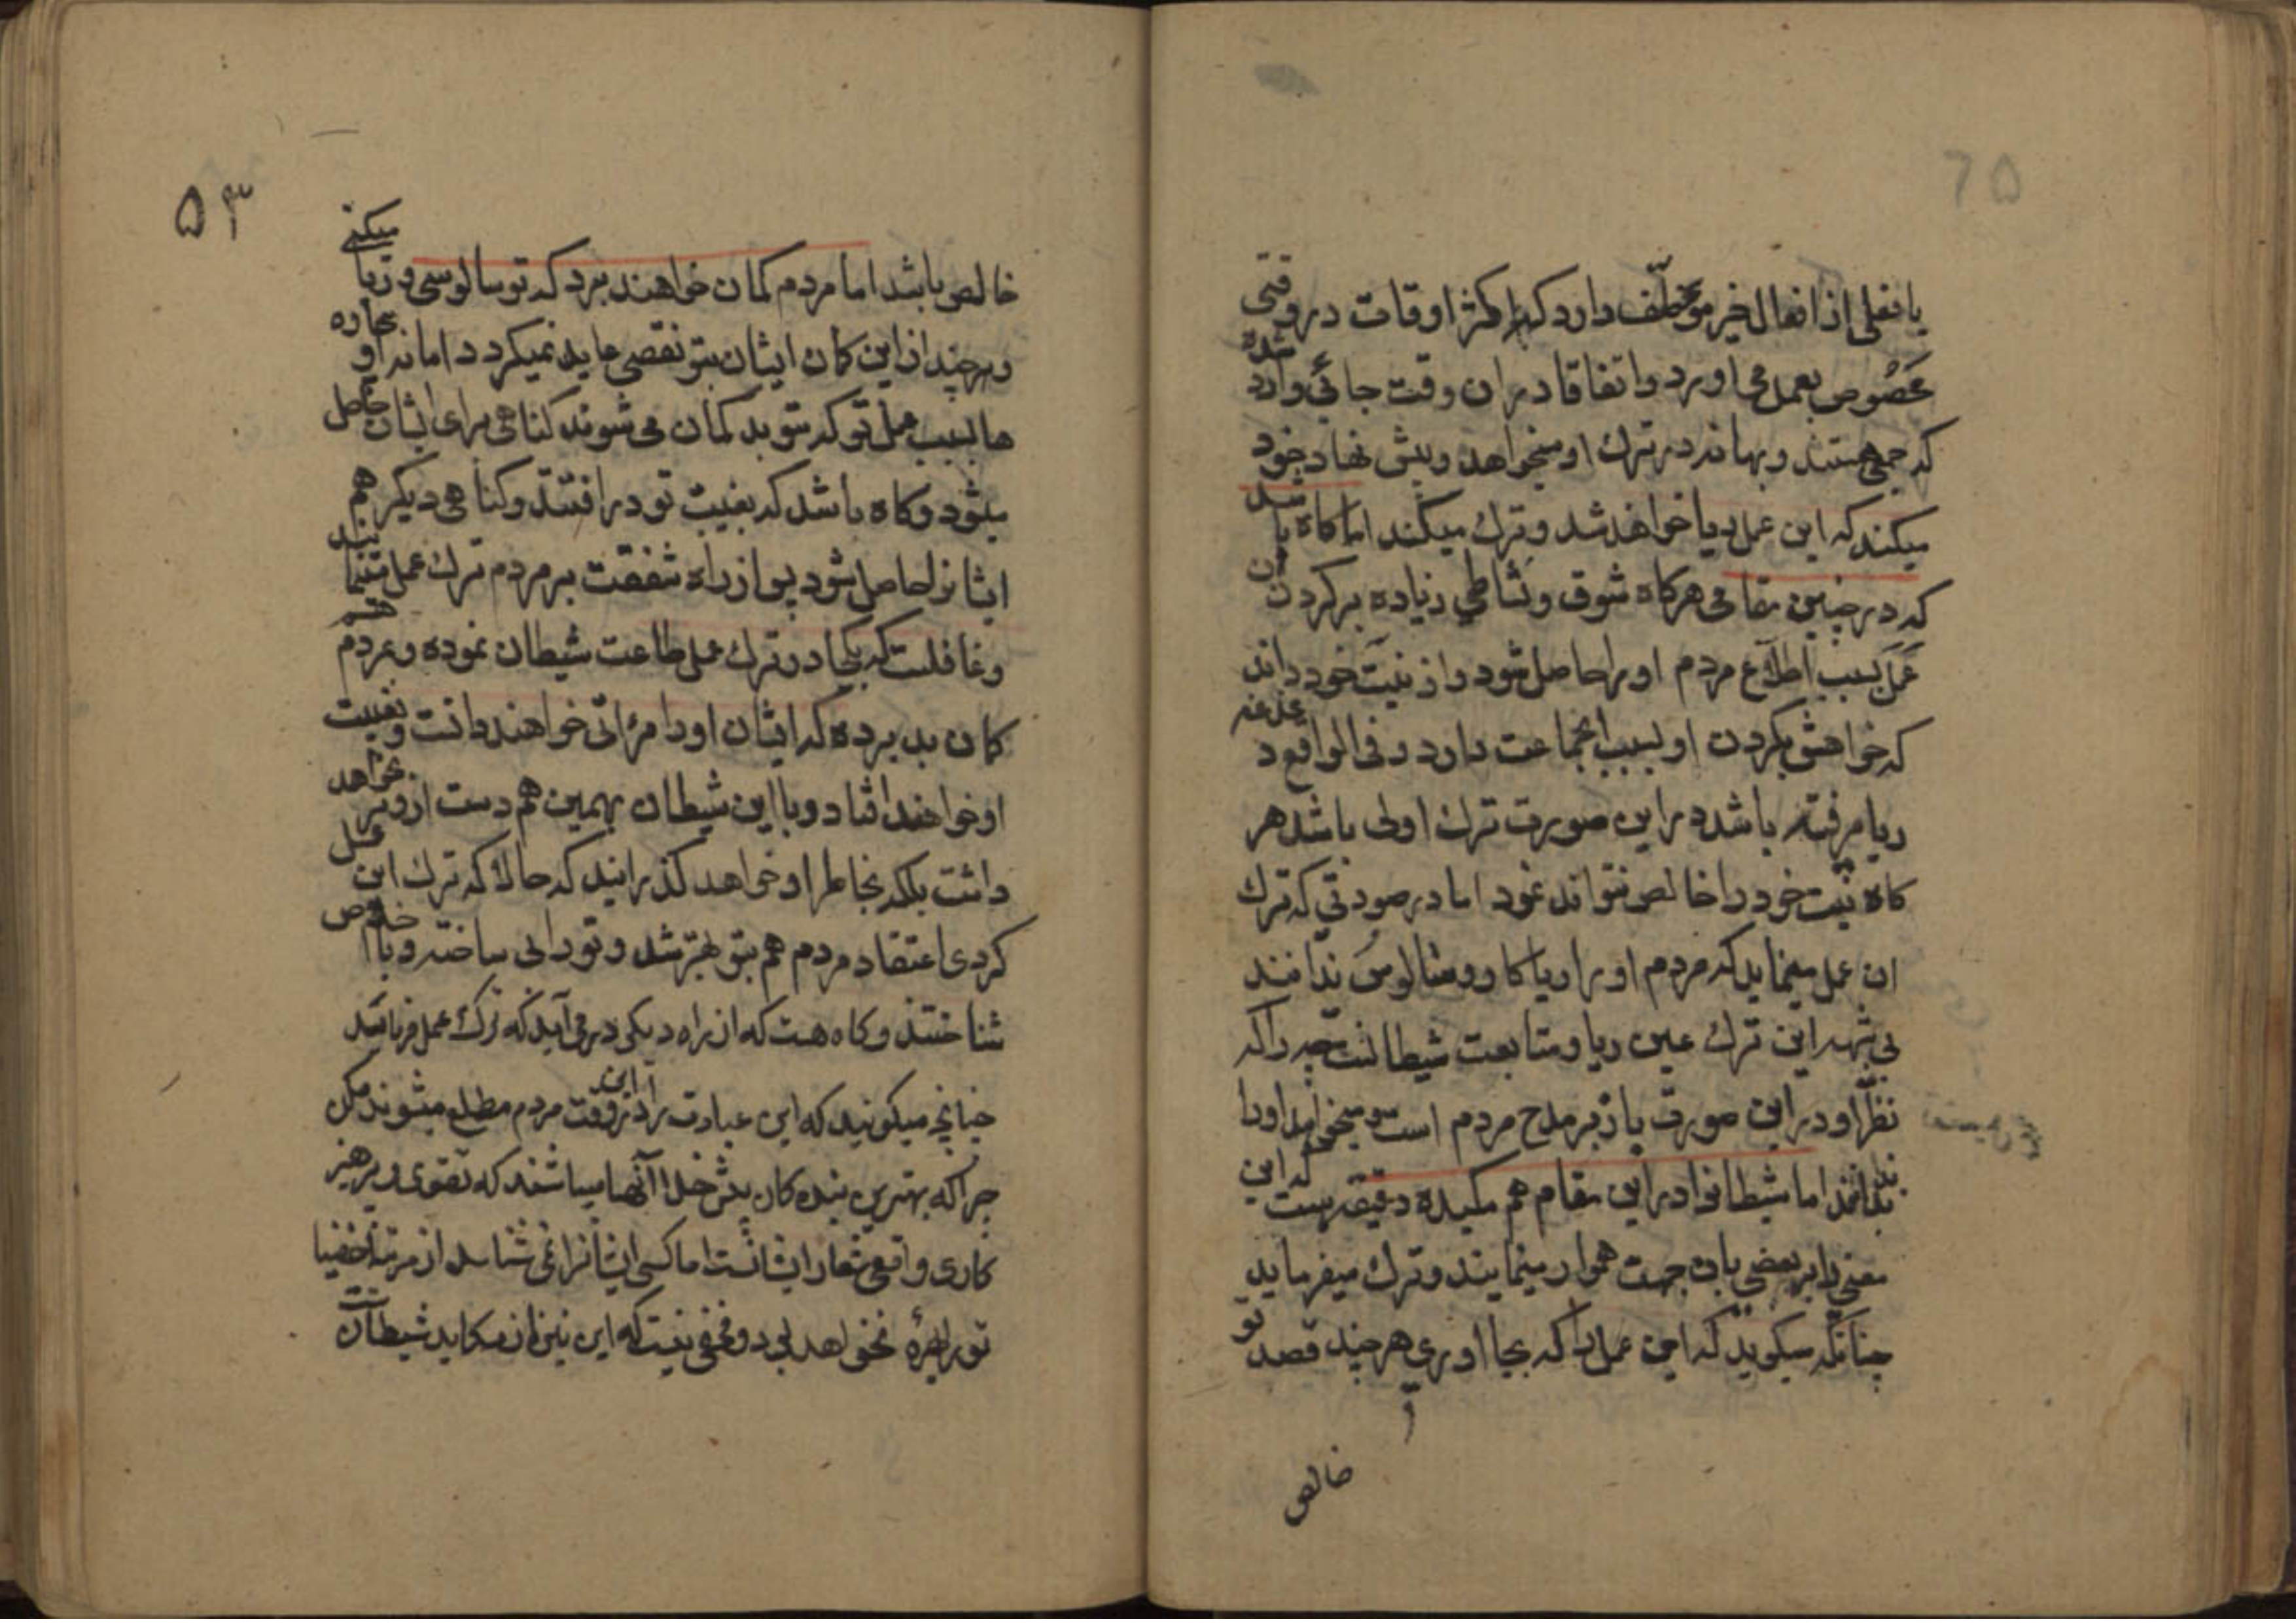 یا فعلی از افعال خیر موظف دارد که اکثر اوقات در وقتی
مخصوص بعمل می اورد و اتفاقا در ان وقت جائی وارد شده
که جمعی هستند و بهانه در ترك او میخواهد و پیش نهاد خود
میکند که این عمل ریا خواهد شد و ترك میکند اما کاه باشد
که در چنین مقامی هرکاه شوق و نشاطی زیاده بر کردن ان
عمل بسبب اطلاع مردم او را حاصل شود و از نیت خود داند
که خواهش بکردن او بسبب انجماعت دارد و فی الواقع
ریا مرفته باشد در این صورت ترك اولی باشد هر
کاه نیت خود را خالص نتواند نمود اما در صورتی که ترك
ان عمل مینماید که مردم او را ریا کار و سالوس ندانند
بی شبهه این ترك عین ریا و متابعت شیطانست چه را که
نظر او در این صورت باز بر مدح مردم است و میخواهد او را بد
ندانند اما شیطانرا در این مقام هم مکیده دقیقه هست که این
معنی را بر بعضی بان جهت هموار مینمایند و ترك میفرماید
چنانکه میکوید که این عمل را که بجا اوری هر چند قصد تو
خالص
۵۳
خالص باشد اما مردم کمان خواهند برد که تو سالوسی و ریا میکنی
و هر چند از این کمان ایشان بتو نقصی عاید نمیکردد اما نه او بیچاره
ها بسبب عمل تو که بتو بد کمان می شوند کناهی برای ایشان حاصل
میشود و کاه باشد که بغیبت تو در افتند و کناهی دیکر هم
ایشانرا حاصل شود پس از راه شفقت بر مردم ترك عمل مینماید
و غافلست که بیجا در ترك عمل طاعت شیطان نموده و بمردم هم
کمان بد برده که ایشان او را مرائی خواهند دانست و بغیبت
او خواهند افتاد و با این شیطان بهمین هم دست از او بر نخواهد
داشت بلکه بخاطر او خواهد کذرانید که حالا که ترك این عمل
کردی اعتقاد مردم هم بتو بهتر شد و تو را بی ساخته و با اخلاص
شناختند و کاه هست که از راه دیکر در می آید که ترك عمل فرماید
چنانچه میکوید که این عبادت را در این وقت مردم مطلع میشوند مکن
چرا که بهترین بنده کان پیش خدا آنها میباشند که تقوی و پرهیز
کاری واقعی شعار ایشانست اما کسی ایشانرا نمی شناسد از مرتبه اخفیا
تو را بهره نخواهد بود و مخفی نیست که این نیز از مکاید شیطانست